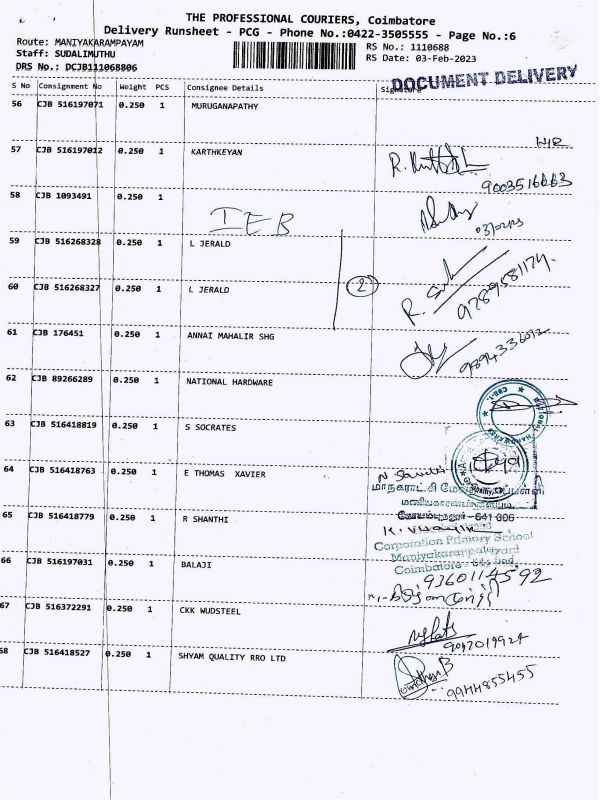 THE PROFESSIONAL COURIERS, Coimbatore
Delivery Runsheet - PCG - Phone No.:0422-3505555 - Page No.:6
Route: MANIYAKARAMPAYAM
Staff: SUDALIMUTHU
DRS No.: DCJB111068806
RS No.: 1110688
RS Date: 03-Feb-2023
DOCUMENT DELIVERY
S No Consignment No Weight PCS Consignee Details Signature
56 CJB 516197071 0.250 1 MURUGANAPATHY
57 CJB 516197012 0.250 1 KARTHKEYAN
9003516663
58 CJB 1093491 0.250 1
IEB
59 CJB 516268328 0.250 1 L JERALD
2
60 CJB 516268327 0.250 1 L JERALD
9789581174
61 CJB 176451 0.250 1 ANNAI MAHALIR SHG
62 CJB 89266289 0.250 1 NATIONAL HARDWARE
63 CJB 516418819 0.250 1 S SOCRATES
64 CJB 516418763 0.250 1 E THOMAS XAVIER
மாநகராட்சி
65 CJB 516418779 0.250 1 R SHANTHI
641 006
Corporation Primary School
Coimbatore
66 CJB 516197031 0.250 1 BALAJI
9360114592
67 CJB 516372291 0.250 1 CKK WUDSTEEL
9042019924
68 CJB 516418527 0.250 1 SHYAM QUALITY RRO LTD
9944855455